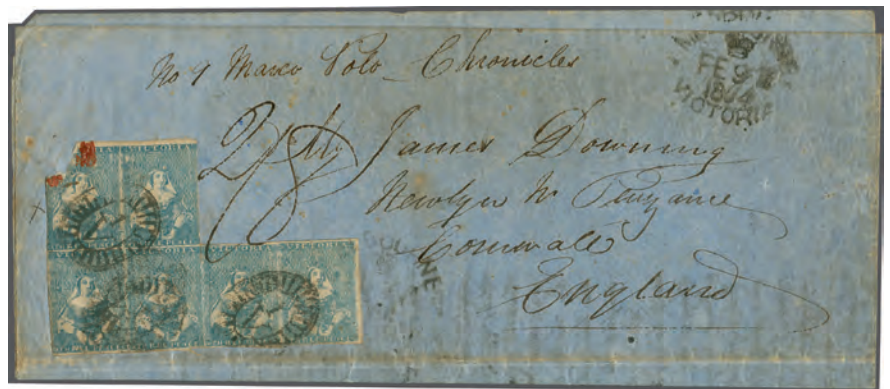 No 9 Marco Polo Chronicles
FE 9
1864
VICTORIA
2/8
Mr James Downing
Newlyn Nr Penzance
Cornwall
England
VICTORIA